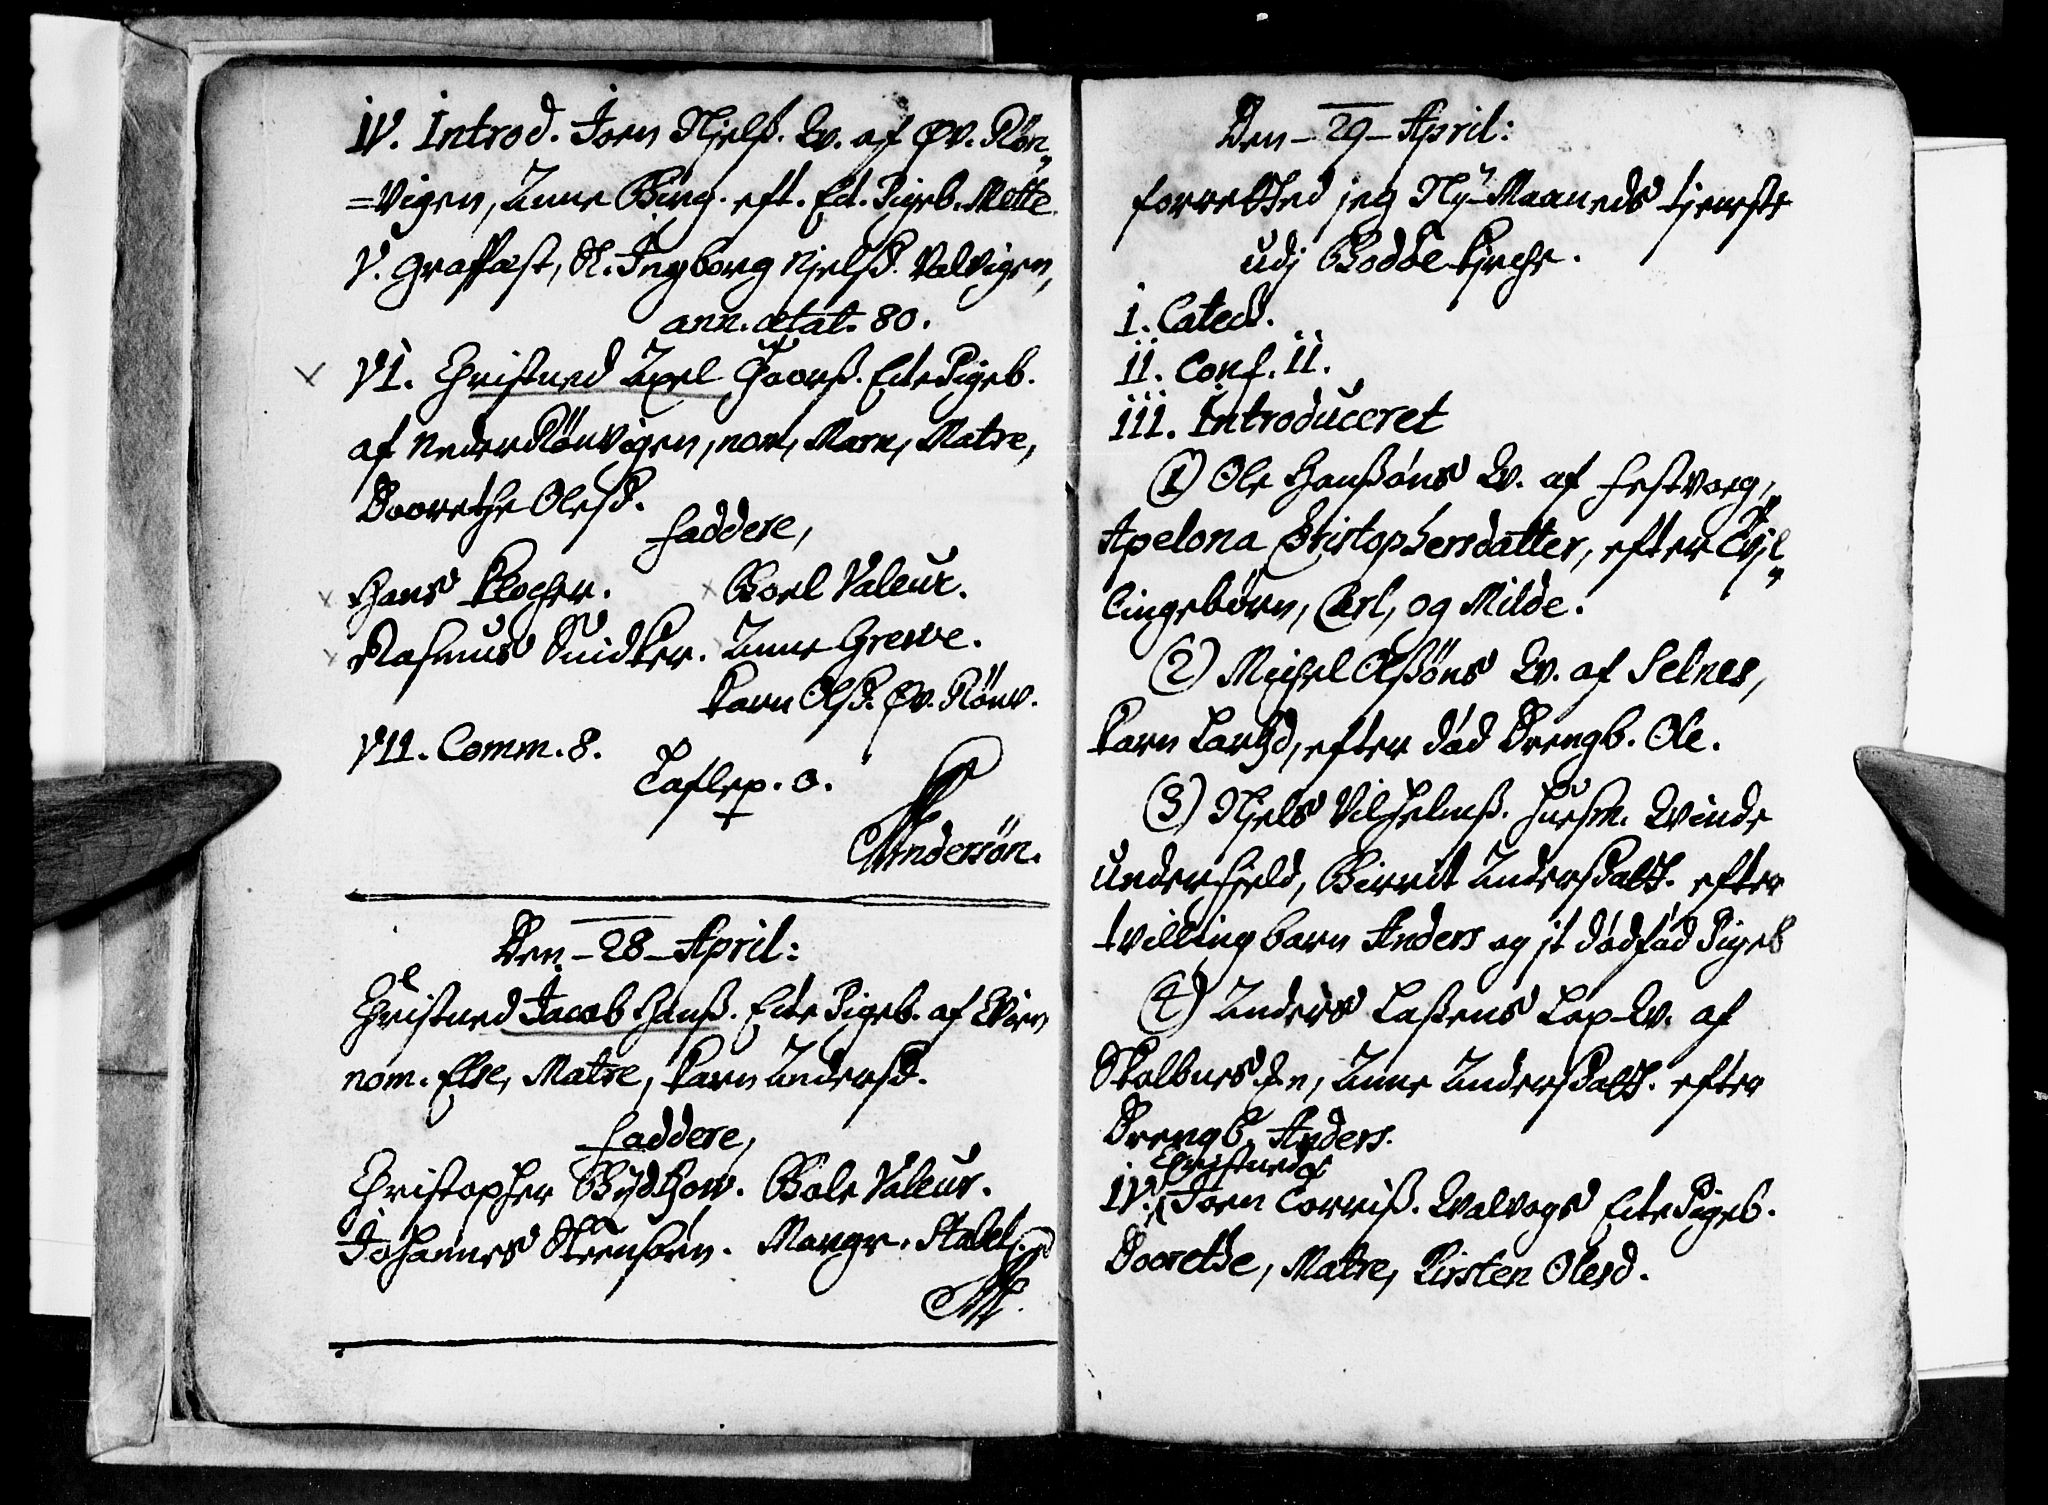 IV. Introd. Joen Njelß. Qv. af Øv. Rön„
=vigen, Anne Bing. eft. Ect. Pigeb. Mette
V. Graffæst, S. Ingborg Njelsd. Valvigen,
ann. ætat. 80.
VI. Christned Axel Thoorß. Ecte Pigeb.
af Neder Rönvigen, nom, Maren, Matre,
Doorethe Olesd.
Faddere,
Hans Blocher. Boel Valeur.
Rasmus Snidker. Anne Greve.
Karn Olsd. Øv. Rönv.
VII. Comm. 8.
Taflep. 0.
Andersön.
Den - 28 - April:
Christned Jacob Hanß. Ecte Pigeb. af
nom. Else, Matre, Karn Andersd.
Faddere,
Christopher Bydthow. Bole Valeur.
Johannes Steensörn. Margr. Stabel
Den - 29 - April:
forretted jeg Ny-Maaneds tjenesте
udj Boddøe Kirche.
I. Catech.
II. Conf. 11.
III. Introduceret
(1) Ole Hanßöns Qv. af Festvoeg,
Apelona Christophersdatter, efter Tvil„
lingebörn, Carl, og Milde.
(2) Michel Olßöns Qv. af Selnes,
Karn Larsd, efter död Drengb. Ole.
(3) Njels Vilhelmß. Huusm. Qvinde
under Fjeld, Birrit Andersdatt. efter
tvilling barn Anders og jt dödföd Pigeb
(4) Anders Laßens Lap-Qv. af
Skalbunes Anne Andersdatt. efter
Drengb. Anders.
Christned
IV. Joen Corniß. Qvalvogs Ecte Pigeb.
Doorethe, Matre, Kirsten Olesd.